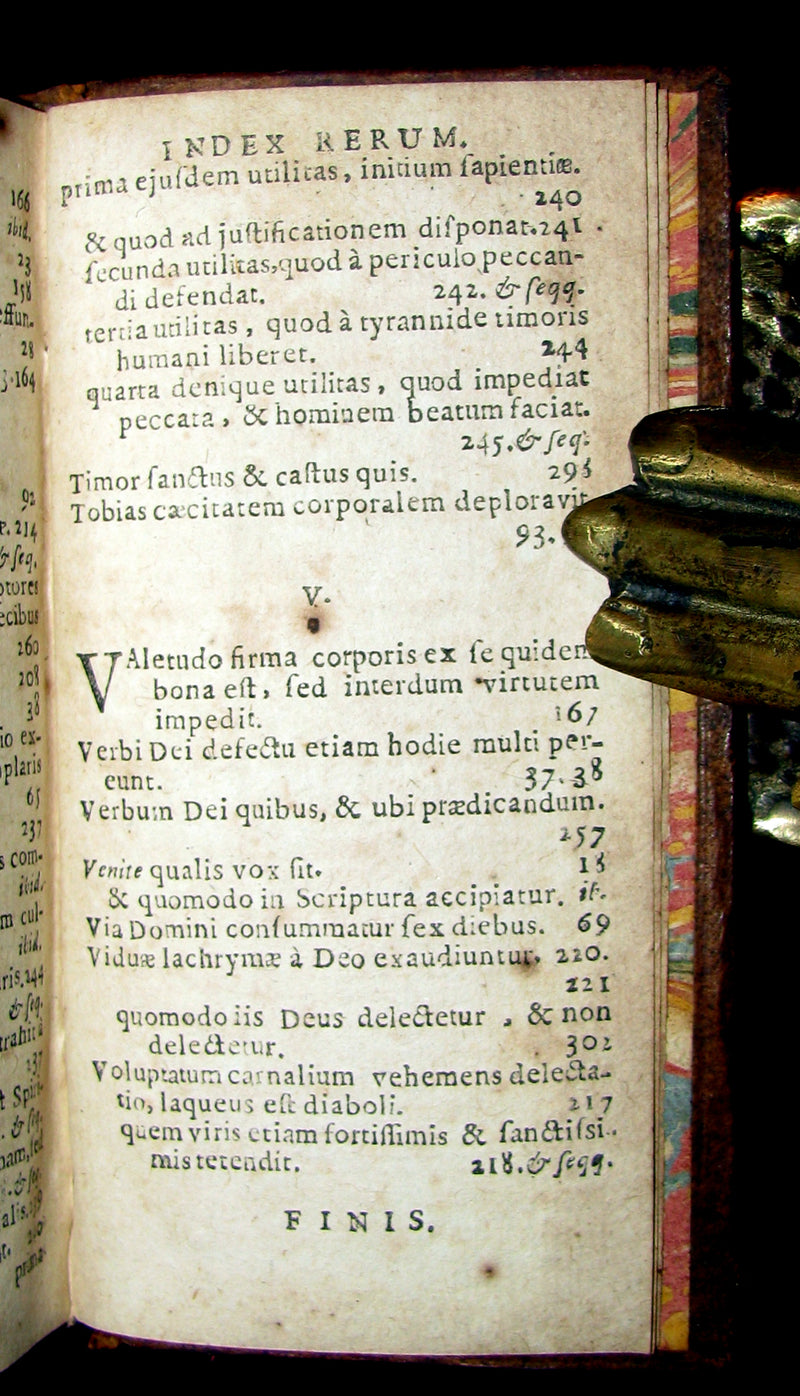 166
ibid.
23
158
28
164
92
234
& seq.
260
208
38
65
237
ibid.
INDEX RERUM.
prima ejuſdem utilitas, initium ſapientiæ.
240
& quod ad juſtificationem diſponat. 241
ſecunda utilitas, quod à periculo peccan-
di defendat. 242. & ſeqq.
tertia utilitas, quod à tyrannide timoris
humani liberet. 244
quarta denique utilitas, quod impediat
peccata, & hominem beatum faciat.
245. & ſeq.
Timor ſanctus & caſtus quis.
Tobias cæcitatem corporalem deploravit
93.
V.
VAletudo firma corporis ex ſe quidem
bona eſt, ſed interdum virtutem
impedit. 167
Verbi Dei defectu etiam hodie multi per-
eunt. 37. 38
Verbum Dei quibus, & ubi prædicandum.
257
Venite qualis vox ſit. 18
& quomodo in Scriptura accipiatur. ib.
Via Domini conſummatur ſex diebus. 69
Viduæ lachrymæ à Deo exaudiuntur. 220.
221
quomodo iis Deus delectetur, & non
delectetur. 302
Voluptatum carnalium vehemens delecta-
tio, laqueus eſt diaboli. 217
quem viris etiam fortiſſimis & ſanctiſsi-
mis tetendit. 218. & ſeqq.
FINIS.